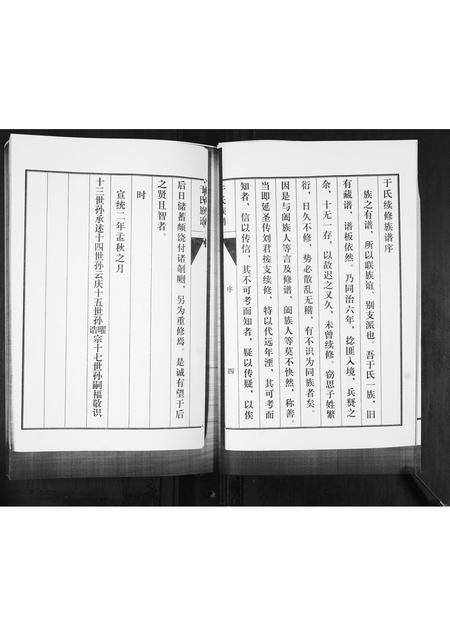 于氏续修族谱序
族之有谱，所以联族谊、别支派也。吾于氏一族，旧
有藏谱，谱板依然。乃同治六年，捻匪入境，兵燹之
余，十无一存，以故迟之又久，未曾续修。窃思子姓繁
衍，日久不修，势必散乱无稽，有不识为同族者矣。
因是与阖族人等言及修谱，阖族人等莫不快然，称善。
当即延圣传刘君按支续修，特以代远年湮，其可考而
知者，信以传信，其不可考而知者，疑以传疑，以俟
于氏族谱
序
四
后日储蓄颇饶付诸剞劂，另为重修焉。是诚有望于后
之贤且智者。
时
宣统二年孟秋之月
十三世孙承述十四世孙云庆十五世孙曜浩宗十七世孙嗣福敬识